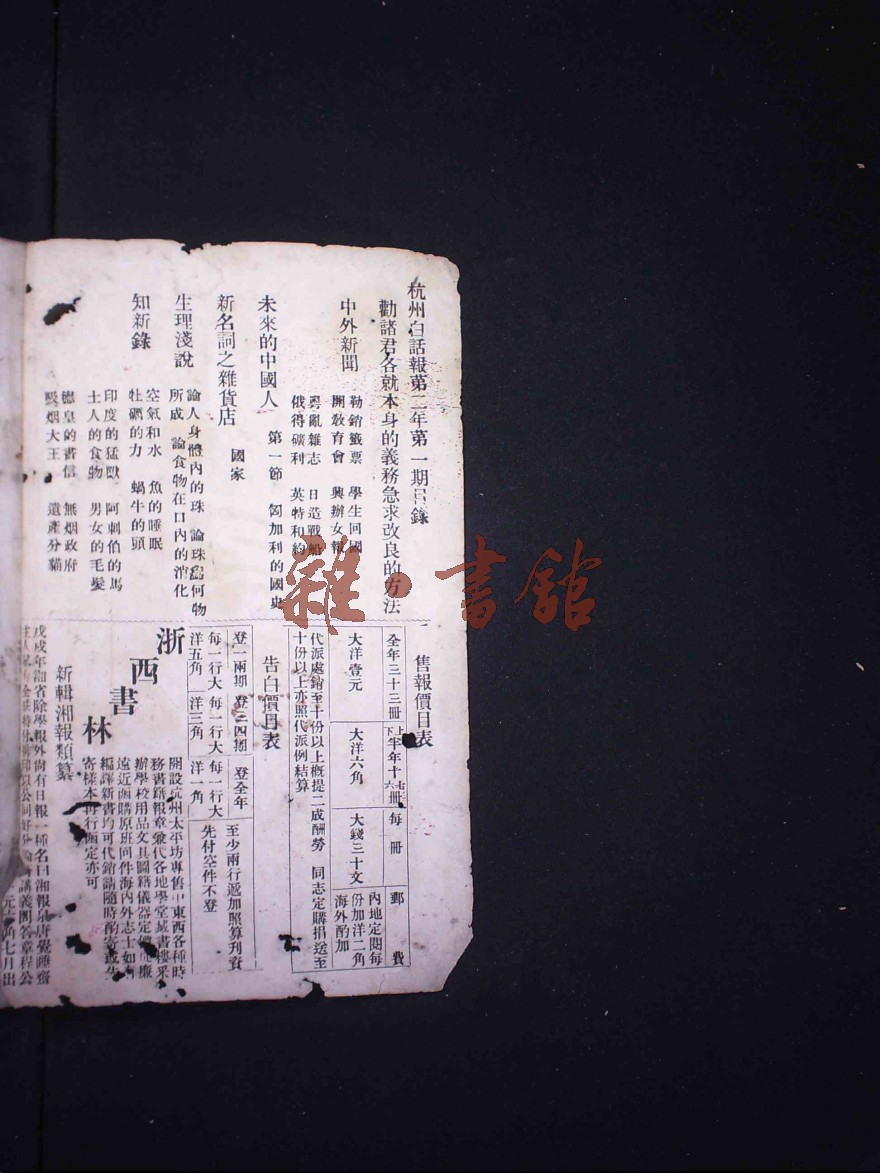 杭州白話報第二年第一期目錄
勸諸君各就本身的義務急求改良的方法
中外新聞
勒銷籤票 學生回國
開教育會 興辦女報
亂雜志 日造戰船
俄得礦利 英特和約
未來的中國人 第一節 匈加利的國史
新名詞之雜貨店 國家
生理淺說
論人身體內的珠 論珠爲何物
所成 論食物在口內的消化
知新錄
空氣和水 魚的睡眠
牡礪的力 蝸牛的頭
印度的猛獸 阿刺伯的馬
土人的食物 男女的毛髮
德皇的書信 無烟政府
吸烟大王 遺產分貓
售報價目表
全年三十三冊 上下半年十七六冊 每冊 郵費
大洋壹元 大洋六角 大錢三十文 內地定閱每份加洋二角海外酌加
代派處銷至十份以上概提二成酬勞 同志定購捐送至
十份以上亦照代派例結算
告白價目表
登一兩期 登三四期 登全年 至少兩行遞加照算刊資
每一行大 每一行大 每一行大 先付空件不登
洋五角 洋三角 洋一角
浙西書林
開設杭州太平坊專售中東西各種時
務書籍報章兼代各地學堂藏書樓采
辦學校用品文具圖籍儀器定價廉
遠近函購原班回件海內外志士如有
編譯新書均可代銷請隨時酌寄或先
寄樣本再行函定亦可
新輯湘報類纂
戊戌年湖省除學報外尚有日報一種名曰湘報是唐瀏陽
論講義問答章程公
元六角七月出
雜·書館